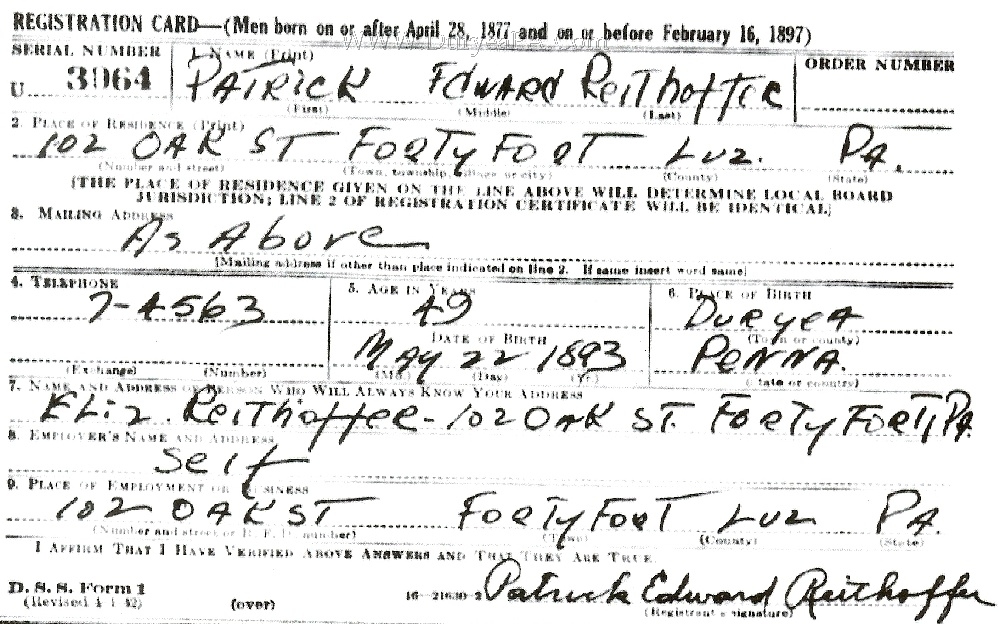 REGISTRATION CARD—(Men born on or after April 28, 1877 and on or before February 16, 1897)
SERIAL NUMBER 1. NAME (Print) ORDER NUMBER
U 3964 PATRICK EDWARD ReiTHoffer
(First) (Middle) (Last)
2. PLACE OF RESIDENCE (Print)
102 OAK ST FORTY FORT LUZ. PA.
(Number and street) (Town, township, village or city) (County) (State)
[THE PLACE OF RESIDENCE GIVEN ON THE LINE ABOVE WILL DETERMINE LOCAL BOARD
JURISDICTION; LINE 2 OF REGISTRATION CERTIFICATE WILL BE IDENTICAL]
3. MAILING ADDRESS
As Above
[Mailing address if other than place indicated on line 2. If same insert word same]
4. TELEPHONE 5. AGE IN YEARS 6. PLACE OF BIRTH
7-4563 49 DURYEA
DATE OF BIRTH (Town or county)
MAY 22 1893 PENNA.
(Exchange) (Number) (Mo.) (Day) (Yr.) (State or country)
7. NAME AND ADDRESS OF PERSON WHO WILL ALWAYS KNOW YOUR ADDRESS
ELiz. ReiTHoffer-102 OAK ST. FORTY FORT, PA.
8. EMPLOYER'S NAME AND ADDRESS
Self
9. PLACE OF EMPLOYMENT OR BUSINESS
102 OAK ST FORTY FORT LUZ PA.
(Number and street or R. F. D. number) (Town) (County) (State)
I AFFIRM THAT I HAVE VERIFIED ABOVE ANSWERS AND THAT THEY ARE TRUE.
D. S. S. Form 1
(Revised 4-1-42) (over) 16-21630-2 Patrick Edward Reithoffer
(Registrant's signature)